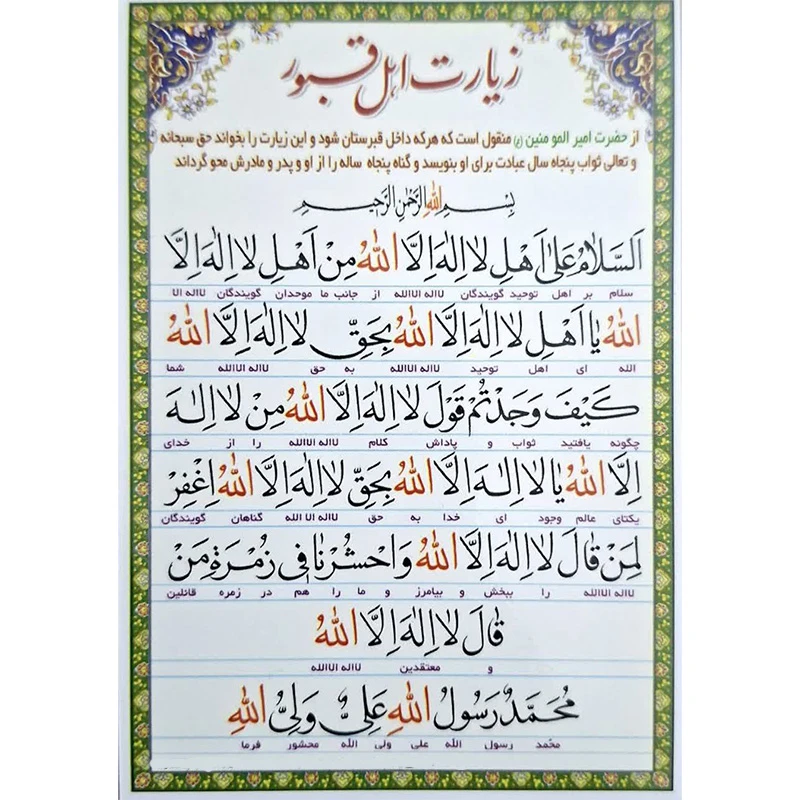 زیارت اهل قبور
از حضرت امیر المو منین (ع) منقول است که هرکه داخل قبرستان شود و این زیارت را بخواند حق سبحانه
و تعالی ثواب پنجاه سال عبادت برای او بنویسد و گناه پنجاه ساله را از او و پدر و مادرش محو گرداند
بِسْمِ اللهِ الرَّحْمٰنِ الرَّحِيمِ
اَلسَّلامُ عَلىٰ اَهْلِ لا اِلٰهَ اِلَّا اللهُ مِنْ اَهْلِ لا اِلٰهَ اِلَّا
سلام بر اهل توحید گویندگان لااله الاالله از جانب ما موحدان گویندگان لااله الا
اللهُ يا اَهْلِ لا اِلٰهَ اِلَّا اللهُ بِحَقِّ لا اِلٰهَ اِلَّا اللهُ
الله ای اهل توحید لااله الاالله به حق لااله الاالله شما
كَيْفَ وَجَدْتُمْ قَوْلَ لا اِلٰهَ اِلَّا اللهُ مِنْ لا اِلٰهَ
چگونه یافتید ثواب و پاداش کلام لااله الاالله را از خدای
اِلَّا اللهُ يا لا اِلٰهَ اِلَّا اللهُ بِحَقِّ لا اِلٰهَ اِلَّا اللهُ اِغْفِرْ
یکتای عالم وجود ای خدا به حق لااله الا الله گناهان گویندگان
لِمَنْ قالَ لا اِلٰهَ اِلَّا اللهُ وَاحْشُرْنا في زُمْرَةِ مَنْ
لااله الاالله را ببخش و بیامرز و ما را هم در زمره قائلین
قالَ لا اِلٰهَ اِلَّا اللهُ
و معتقدین لااله الاالله
مُحَمَّدٌ رَسُولُ اللهِ عَلِيٌّ وَلِيُّ اللهِ
محمّد رسول الله علی ولی الله محشور فرما